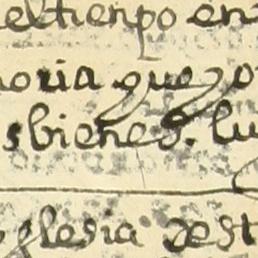 el tienpo en
oria que
s bienes. lu
yglesia dest